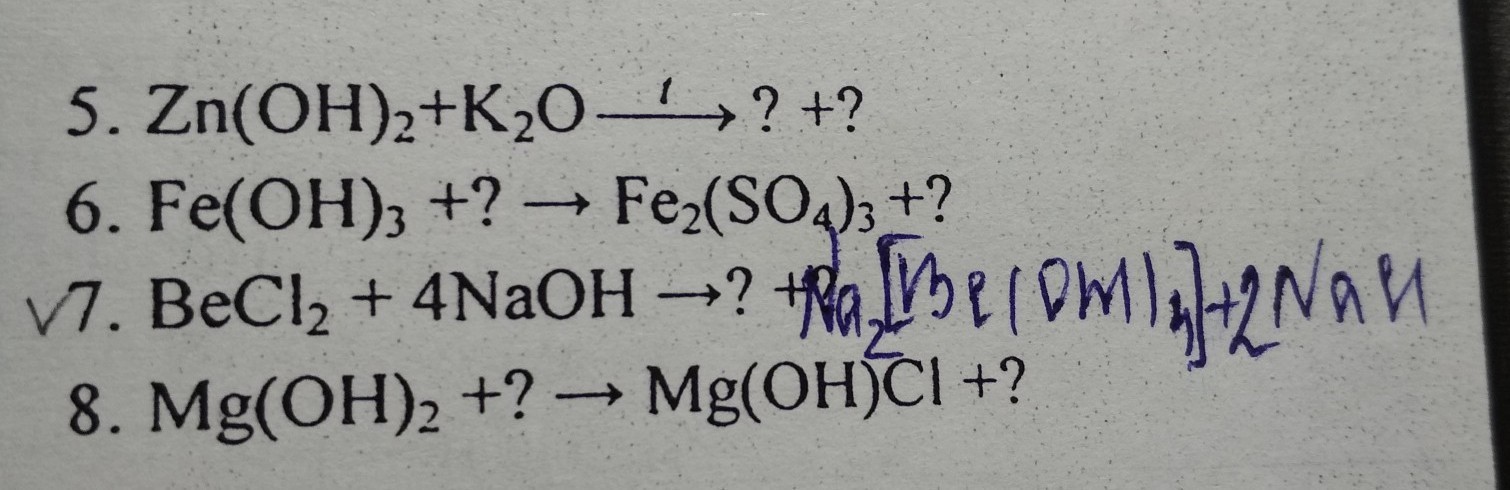 5. Zn(OH)₂+K₂O —t→ ? +?
6. Fe(OH)₃ +? → Fe₂(SO₄)₃ +?
√7. BeCl₂ + 4NaOH →? +? Na₂[Be(OH)₄]+2NaCl
8. Mg(OH)₂ +? → Mg(OH)Cl +?